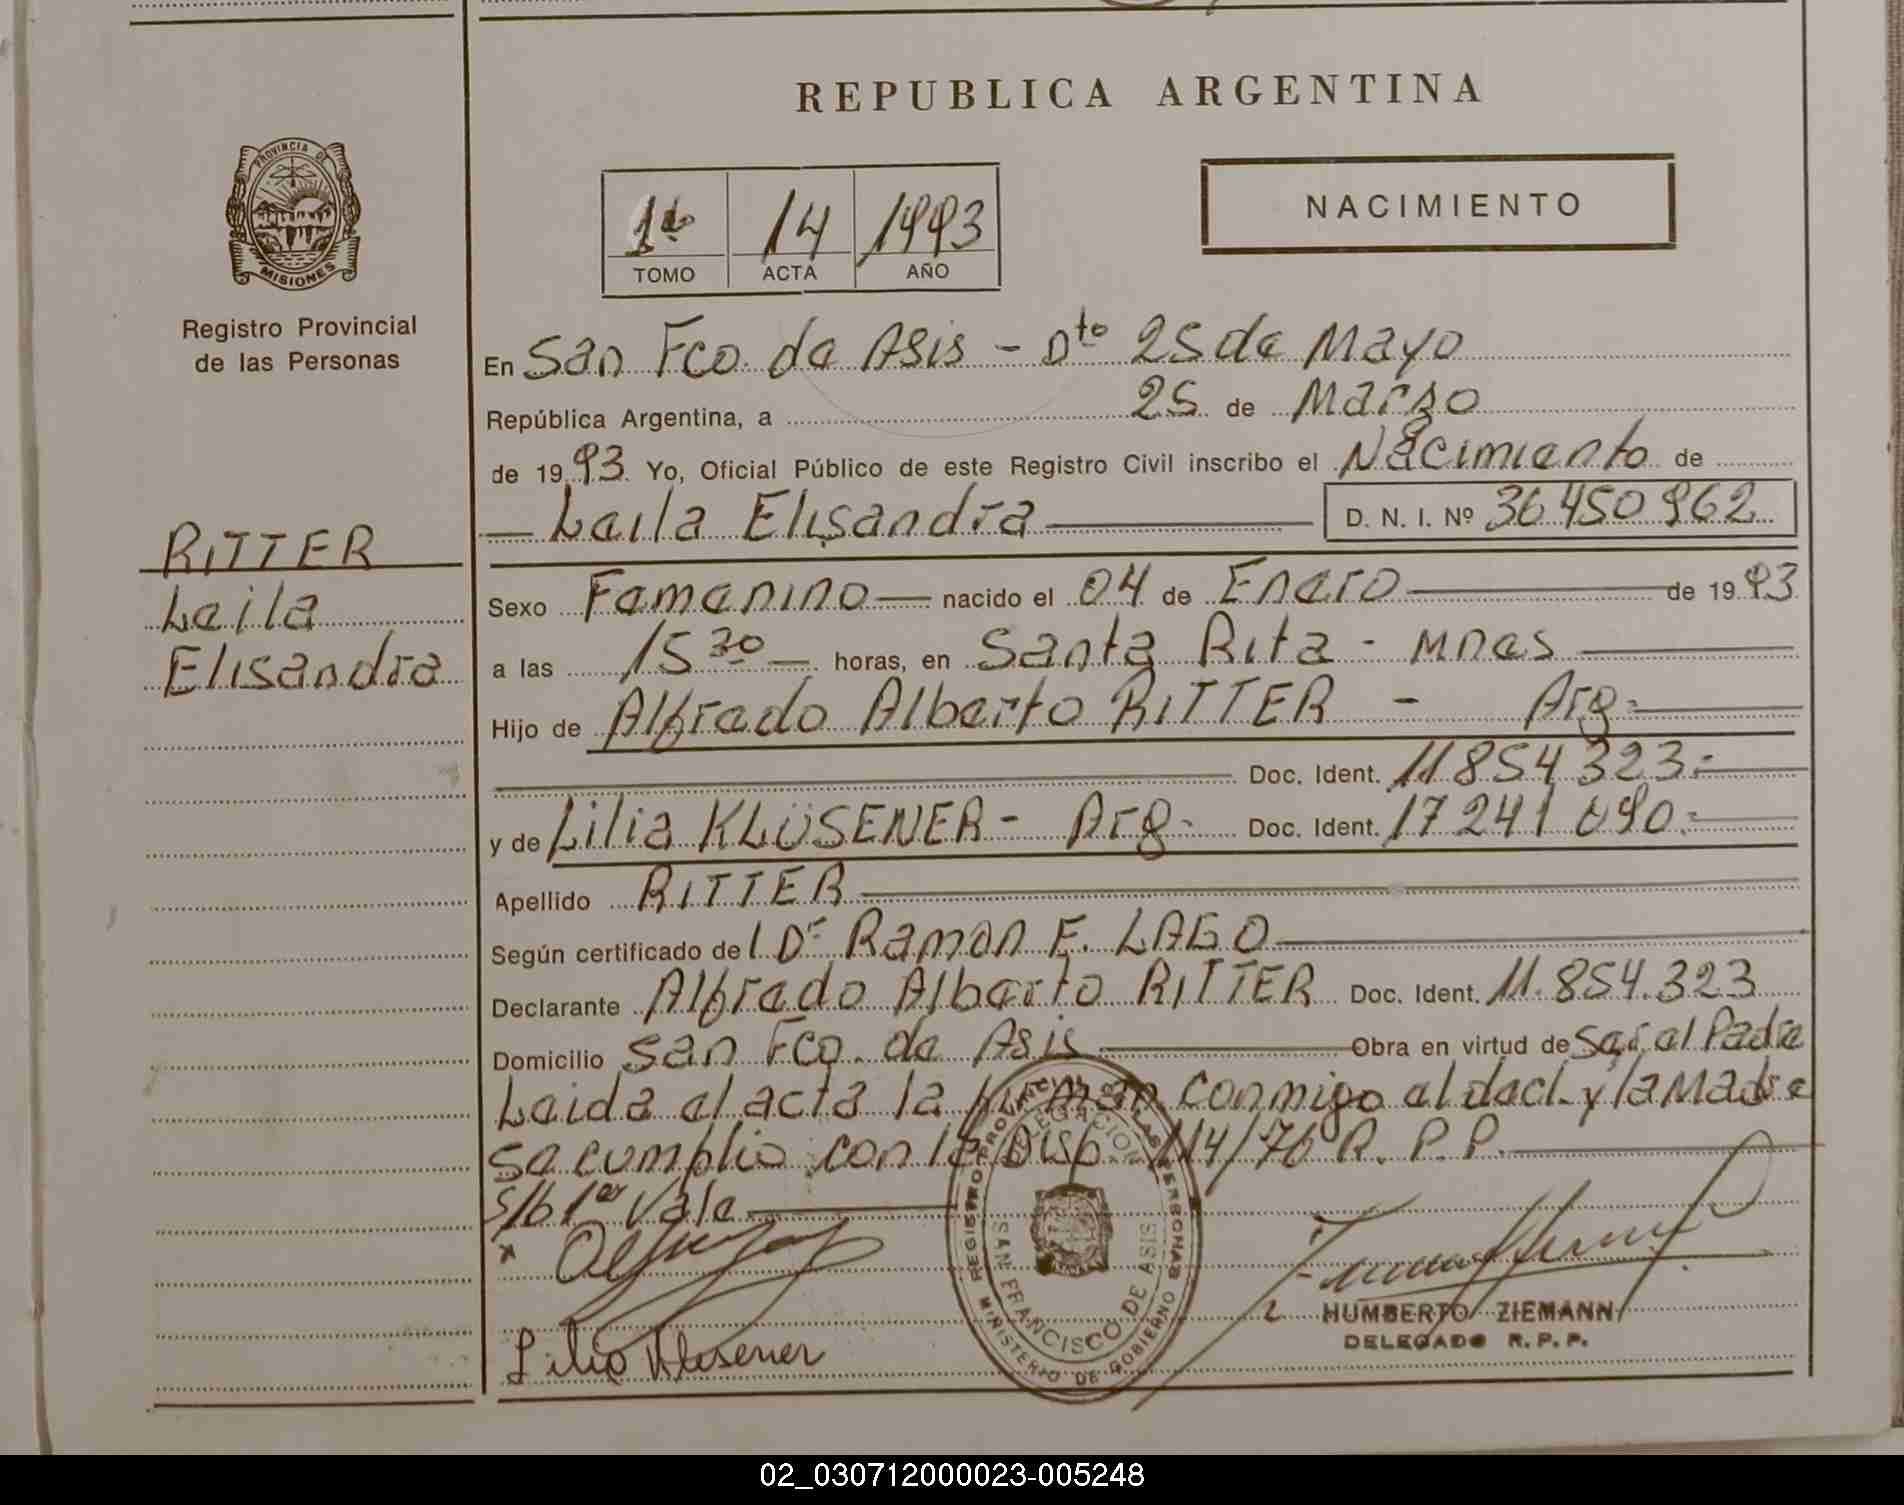 REPUBLICA ARGENTINA
PROVINCIA DE
MISIONES
Registro Provincial
de las Personas
1do 14 1993
TOMO ACTA AÑO
NACIMIENTO
RITTER
Leila
Elisandra
En San Fco. de Asis - Dto 25 de Mayo
República Argentina, a 25 de Marzo
de 1993 Yo, Oficial Público de este Registro Civil inscribo el Nacimiento de
Leila Elisandra D. N. I. Nº 36.450.962
Sexo Femenino nacido el 04 de Enero de 1993
a las 15 30 horas, en Santa Rita - Mnes
Hijo de Alfredo Alberto RITTER - Arg-
Doc. Ident. 11.854.323.-
y de Lilia KLÜSENER - Arg- Doc. Ident. 17.241.090.-
Apellido RITTER
Según certificado del Dr Ramon E. LAGO
Declarante Alfredo Alberto RITTER Doc. Ident. 11.854.323
Domicilio San Fco. de Asis Obra en virtud de Ser el Padre
Leida el acta la firman conmigo el decl. y la Madre
Se cumplio con la Disp. 114/76 R. P. P.
S/b 1er Vale
Lilia Klusener
REGISTRO PROVINCIAL DE LAS PERSONAS
DELEGACION
SAN FRANCISCO DE ASIS
MINISTERIO DE GOBIERNO
HUMBERTO ZIEMANN
DELEGADO R. P. P.
02_030712000023-005248